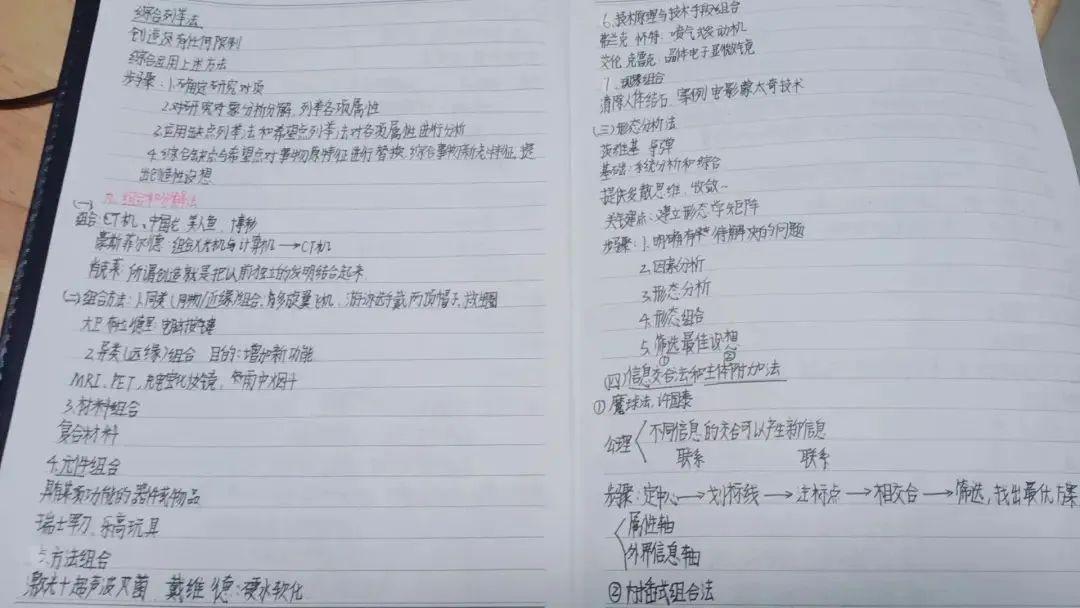 综合列举法
创造没有任何限制
综合应用上述方法
步骤：1.确定研究对项
2.对研究对象分析分解，列举各项属性
3.应用缺点列举法和希望点列举法对各项属性进行分析
4.综合缺点与希望点对事物原特征进行替换，综合事物新充特征，提
出创造性设想
九.组合和分解法
(一)
组合：CT机、中国龙 美人鱼、博物
豪斯菲尔德 组合X光机与计算机→CT机
肖克莱：所谓创造就是把以前独立的发明结合起来
(二)组合方法：1.同类(同物/近缘)组合，有多旋翼飞机、游泳选手戴两顶帽子、
大卫 电脑按键
2.异类(远缘)组合 目的：增加新功能
MRI、PET、充电宝化妆镜、
3.材料组合
复合材料
4.元件组合
具有某项功能的器件或物品
瑞士军刀、乐高玩具
5.方法组合
激光+超声波灭菌 戴维德：硬水软化
6.技术原理与技术手段组合
弗兰克 怀特：喷气发动机
艾伦 克雷克：晶体电子显微镜
7.现象组合
清除人体结石 案例电影蒙太奇技术
(三)形态分析法
茨维基 导弹
基础：系统分析和综合
提供发散思维、收敛~
关键点：建立形态学矩阵
步骤：1.明确有待解决的问题
2.因素分析
3.形态分析
4.形态组合
5.筛选最佳设想
① ②
(四)信息交合法和主体附加法
①魔球法，许国泰
公理 不同信息的交合可以产生新信息
联系 联系
步骤：定中心→划标线→注标点→相交合→筛选，找出最优方案
属性轴
外界信息轴
②内插式组合法